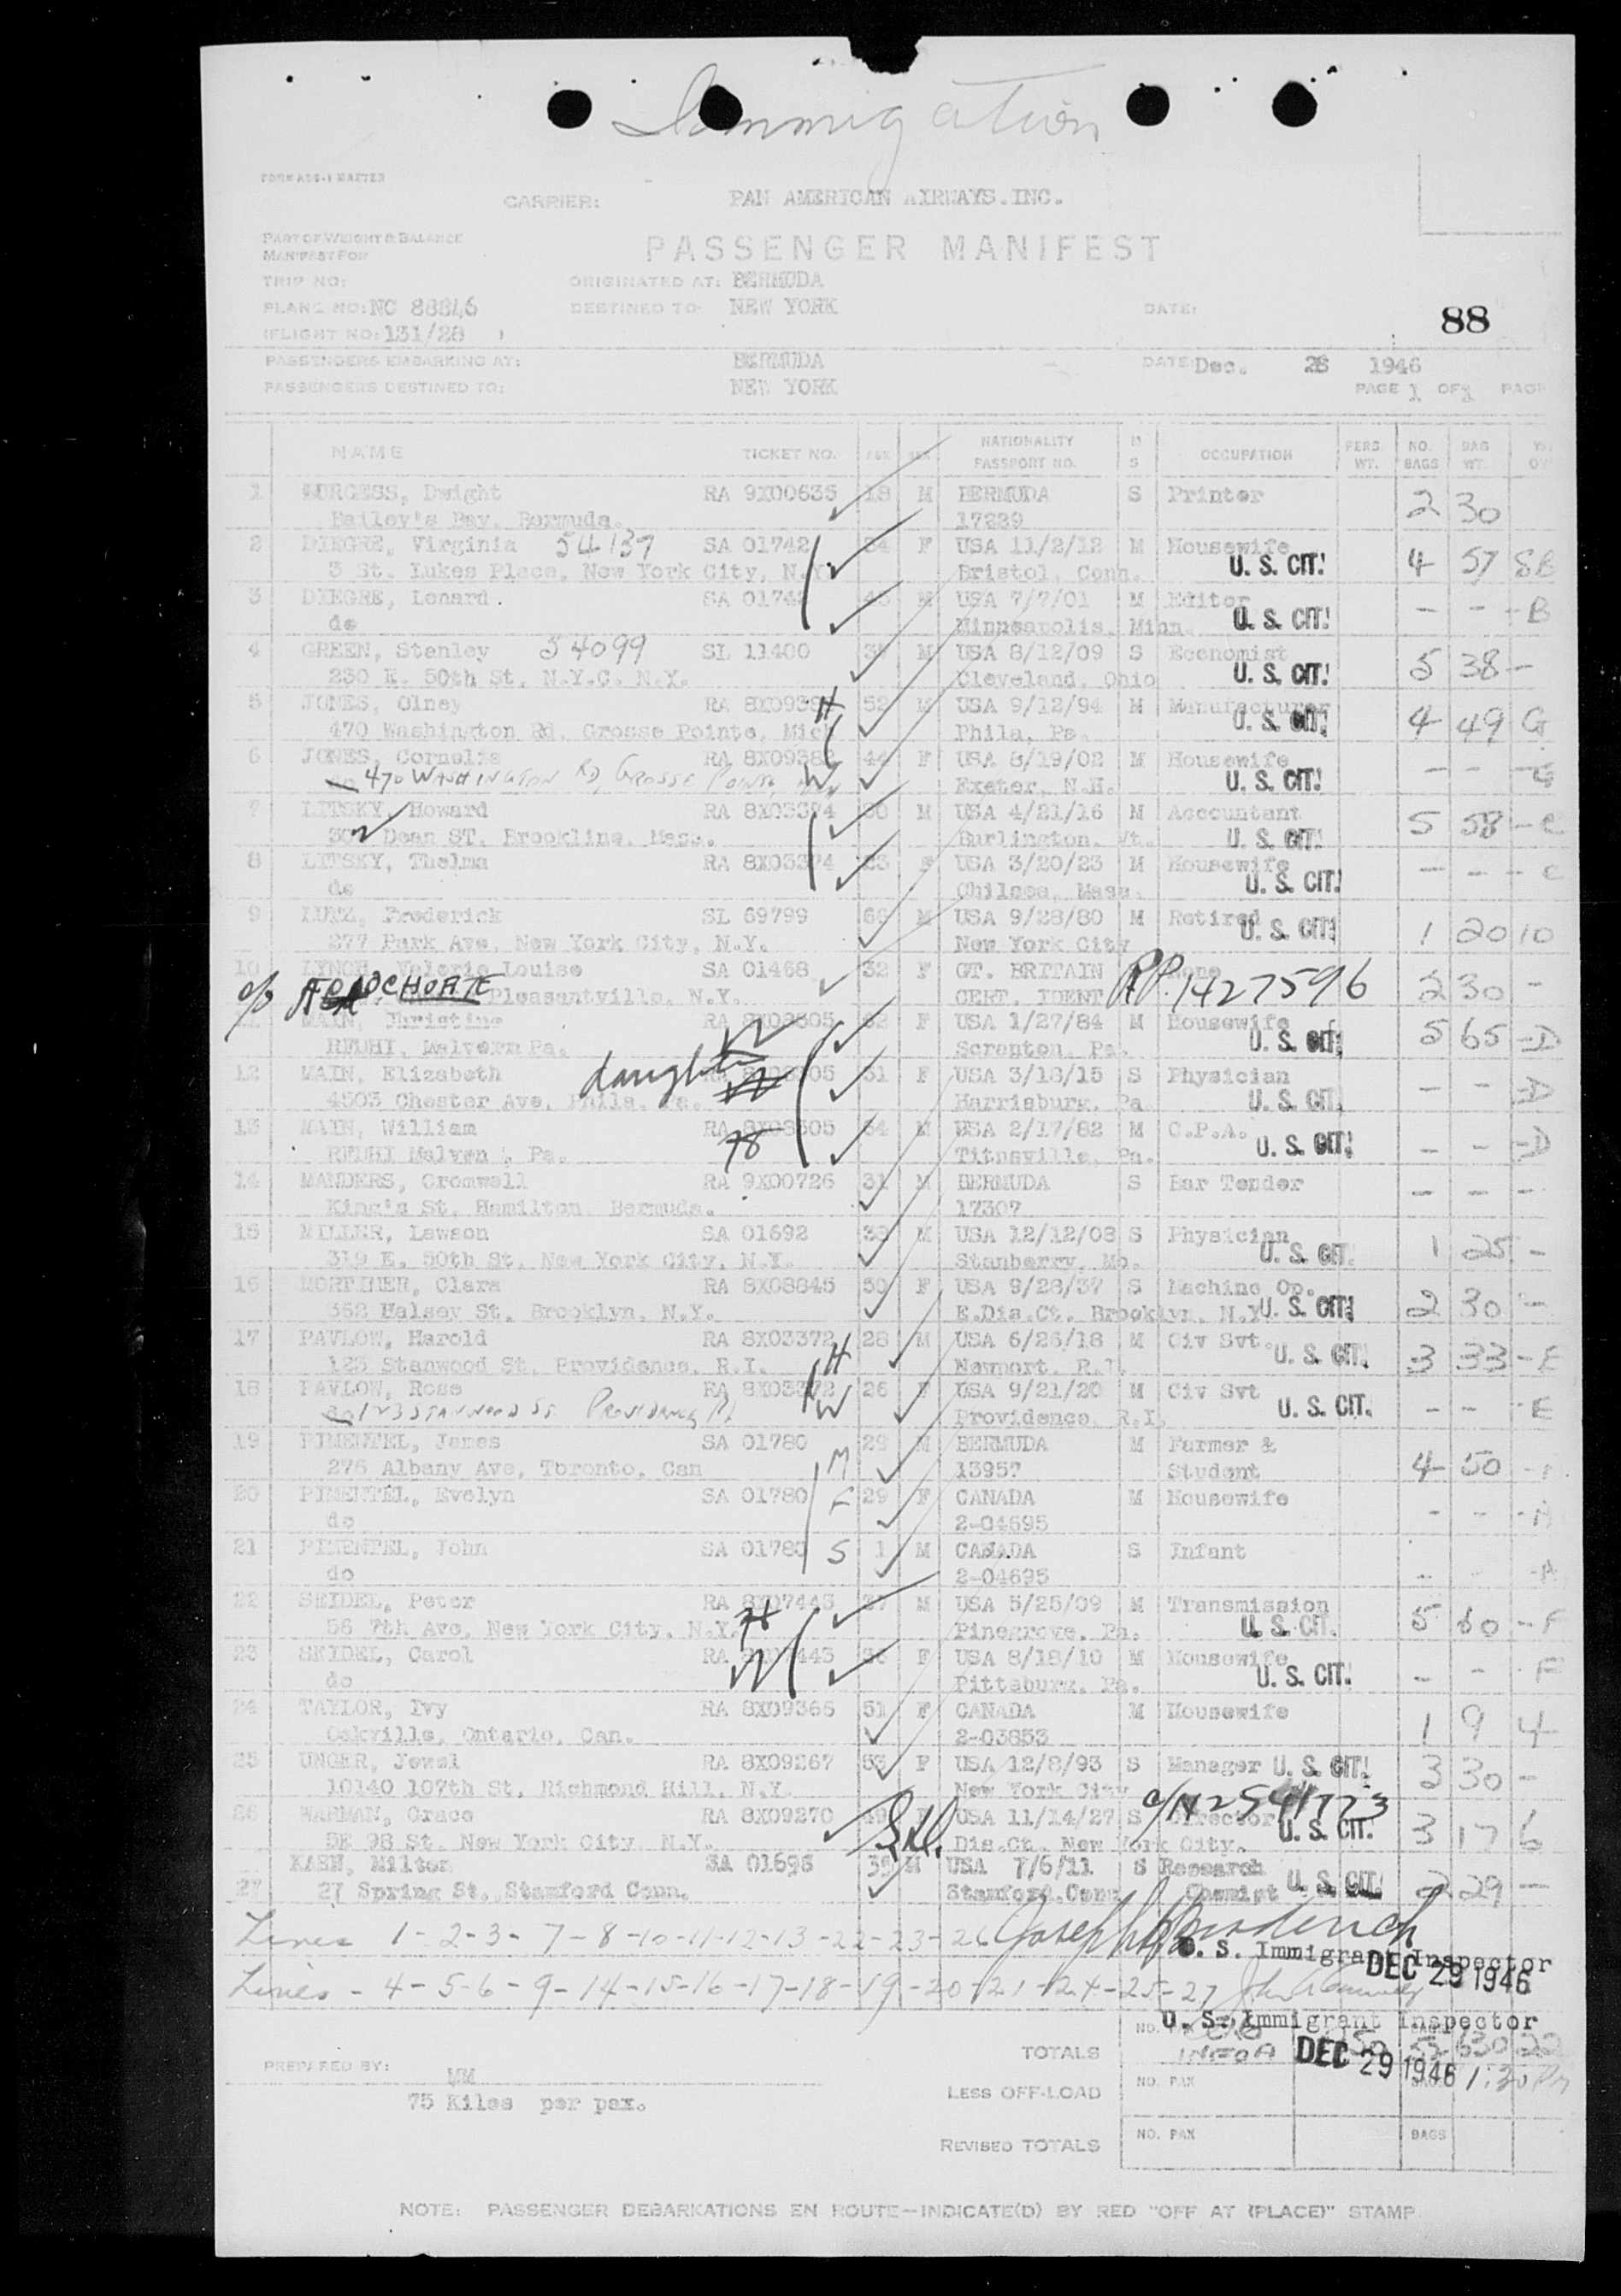 Immigration
FORM ADS-1 MASTER
CARRIER: PAN AMERICAN AIRWAYS.INC.
PART OF WEIGHT & BALANCE
MANIFEST FOR
PASSENGER MANIFEST
TRIP NO: ORIGINATED AT: BERMUDA
PLANE NO: NC 88846 DESTINED TO: NEW YORK DATE:
88
(FLIGHT NO: 131/28 )
PASSENGERS EMBARKING AT: BERMUDA DATE: Dec. 28 1946
PASSENGERS DESTINED TO: NEW YORK PAGE 1 OF PAGE
NAME TICKET NO. AGE SEX NATIONALITY PASSPORT NO. M S OCCUPATION PERS. WT. NO. BAGS BAG WT.
1 BURGESS, Dwight RA 9X00635 18 M BERMUDA S Printer 2 30
Bailey's Bay, Bermuda. 17229
2 DIEGRE, Virginia 54137 SA 01742 34 F USA 11/2/12 M Housewife 4 57 SB
3 St. Lukes Place, New York City, N.Y. Bristol, Conn. U. S. CIT.
3 DIEGRE, Lenard. SA 0174 45 M USA 7/7/01 M Editor - - - B
do Minneapolis, Minn. U. S. CIT.
4 GREEN, Stanley 54099 SL 11400 M USA 8/12/09 S Economist 5 38 -
230 E. 50th St, N.Y.C. N.Y. Cleveland, Ohio U. S. CIT.
5 JONES, Olney RA 8X0939 H 52 M USA 9/12/94 M Manufacturer 4 49 G
470 Washington Rd, Grosse Pointe, Mich Phila, Pa. U. S. CIT.
6 JONES, Cornelia RA 8X09382 W 44 F USA 8/19/02 M Housewife - - - G
470 WASHINGTON RD, GROSSE POINTE, Exeter, N.H. U. S. CIT.
7 LITSKY, Howard RA 8X03374 30 M USA 4/21/16 M Accountant 5 58 - C
Dean ST. Brookline, Mass. Burlington, Vt. U. S. CIT.
8 LITSKY, Thelma RA 8X03374 23 F USA 3/20/23 M Housewife - - - C
do Chilsea, Mass. U. S. CIT.
9 LUTZ, Frederick SL 69799 66 M USA 9/28/80 M Retired 1 20 10
277 Park Ave, New York City, N.Y. New York City U. S. CIT.
10 LYNCH, Valerie Louise SA 01468 32 F GT. BRITAIN None 2 30 -
Pleasantville, N.Y. CERT. IDENT PP. 1427596
11 MAIN, Christine RA 8X08605 62 F USA 1/27/84 M Housewife 5 65 - D
RFDHI, Malvern Pa. W Scranton, Pa. U. S. CIT.
12 MAIN, Elizabeth daughter 31 F USA 3/18/15 S Physician - - - D
4503 Chester Ave, Phila, Pa. Harrisburg, Pa U. S. CIT.
13 MAIN, William RA 8X08605 64 M USA 2/17/82 M C.P.A. - - - D
RFDHI Malven, Pa. H Titusville, Pa. U. S. CIT.
14 MANDERS, Cromwell RA 9X00726 31 M BERMUDA S Bar Tender - - -
King's St, Hamilton, Bermuda. 17307
15 MILLER, Lawson SA 01692 38 M USA 12/12/08 S Physician 1 25 -
319 E. 50th St, New York City, N.Y. Stanberry, Mo. U. S. CIT.
16 MORTIMER, Clara RA 8X08845 50 F USA 9/28/37 S Machine Op. 2 30 -
362 Halsey St, Brooklyn, N.Y. E.Dis.Ct. Brooklyn, N.Y U. S. CIT.
17 PAVLOW, Harold RA 8X03372 H 28 M USA 6/26/18 M Civ Svt. 3 33 - E
123 Stanwood St, Providence, R.I. Newport, R.I. U. S. CIT.
18 PAVLOW, Rose RA 8X03372 W 26 F USA 9/21/20 M Civ Svt - - E
123 STANWOOD ST PROVIDENCE RI Providence, R.I. U. S. CIT.
19 PIMENTEL, James SA 01780 M 29 M BERMUDA M Farmer & 4 50
276 Albany Ave, Toronto, Can 13957 Student
20 PIMENTEL, Evelyn SA 01780 F 29 F CANADA M Housewife - - - A
do 2-04695
21 PIMENTEL, John SA 01780 S 1 M CANADA S Infant - - - A
do 2-04695
22 SEIDEL, Peter RA 8X07443 37 M USA 5/25/09 M Transmission 5 60 - F
56 7th Ave, New York City, N.Y. H Pinegrove, Pa. U. S. CIT.
23 SEIDEL, Carol 36 F USA 8/18/10 M Housewife - - F
do W Pittsburg, Pa. U. S. CIT.
24 TAYLOR, Ivy RA 8X09365 51 F CANADA M Housewife 1 9 4
Oakville, Ontario, Can. 2-03853
25 UNGER, Jewel RA 8X09267 53 F USA 12/8/93 S Manager U. S. CIT. 3 30 -
10140 107th St, Richmond Hill, N.Y. New York City
26 WARMAN, Grace RA 8X09270 49 F USA 11/14/27 S Director 3 17 6
5E 98 St, New York City, N.Y. Dis.Ct. New York City. U. S. CIT.
KAHN, Milton SA 01698 35 M USA 7/6/11 S Research 2 29 -
27 27 Spring St, Stamford Conn. Stamford, Conn Chemist U. S. CIT.
Lines 1-2-3-7-8-10-11-12-13-22-23-26
U. S. Immigrant Inspector
DEC 29 1946
Lines - 4-5-6-9-14-15-16-17-18-19-20-21-24-25-27
U. S. Immigrant Inspector
TOTALS 630 22
DEC 29 1946 1:30 Pm
PREPARED BY: MM
75 Kilos per pax.
LESS OFF-LOAD NO. PAX
REVISED TOTALS NO. PAX BAGS
NOTE: PASSENGER DEBARKATIONS EN ROUTE—INDICATE(D) BY RED "OFF AT (PLACE)" STAMP